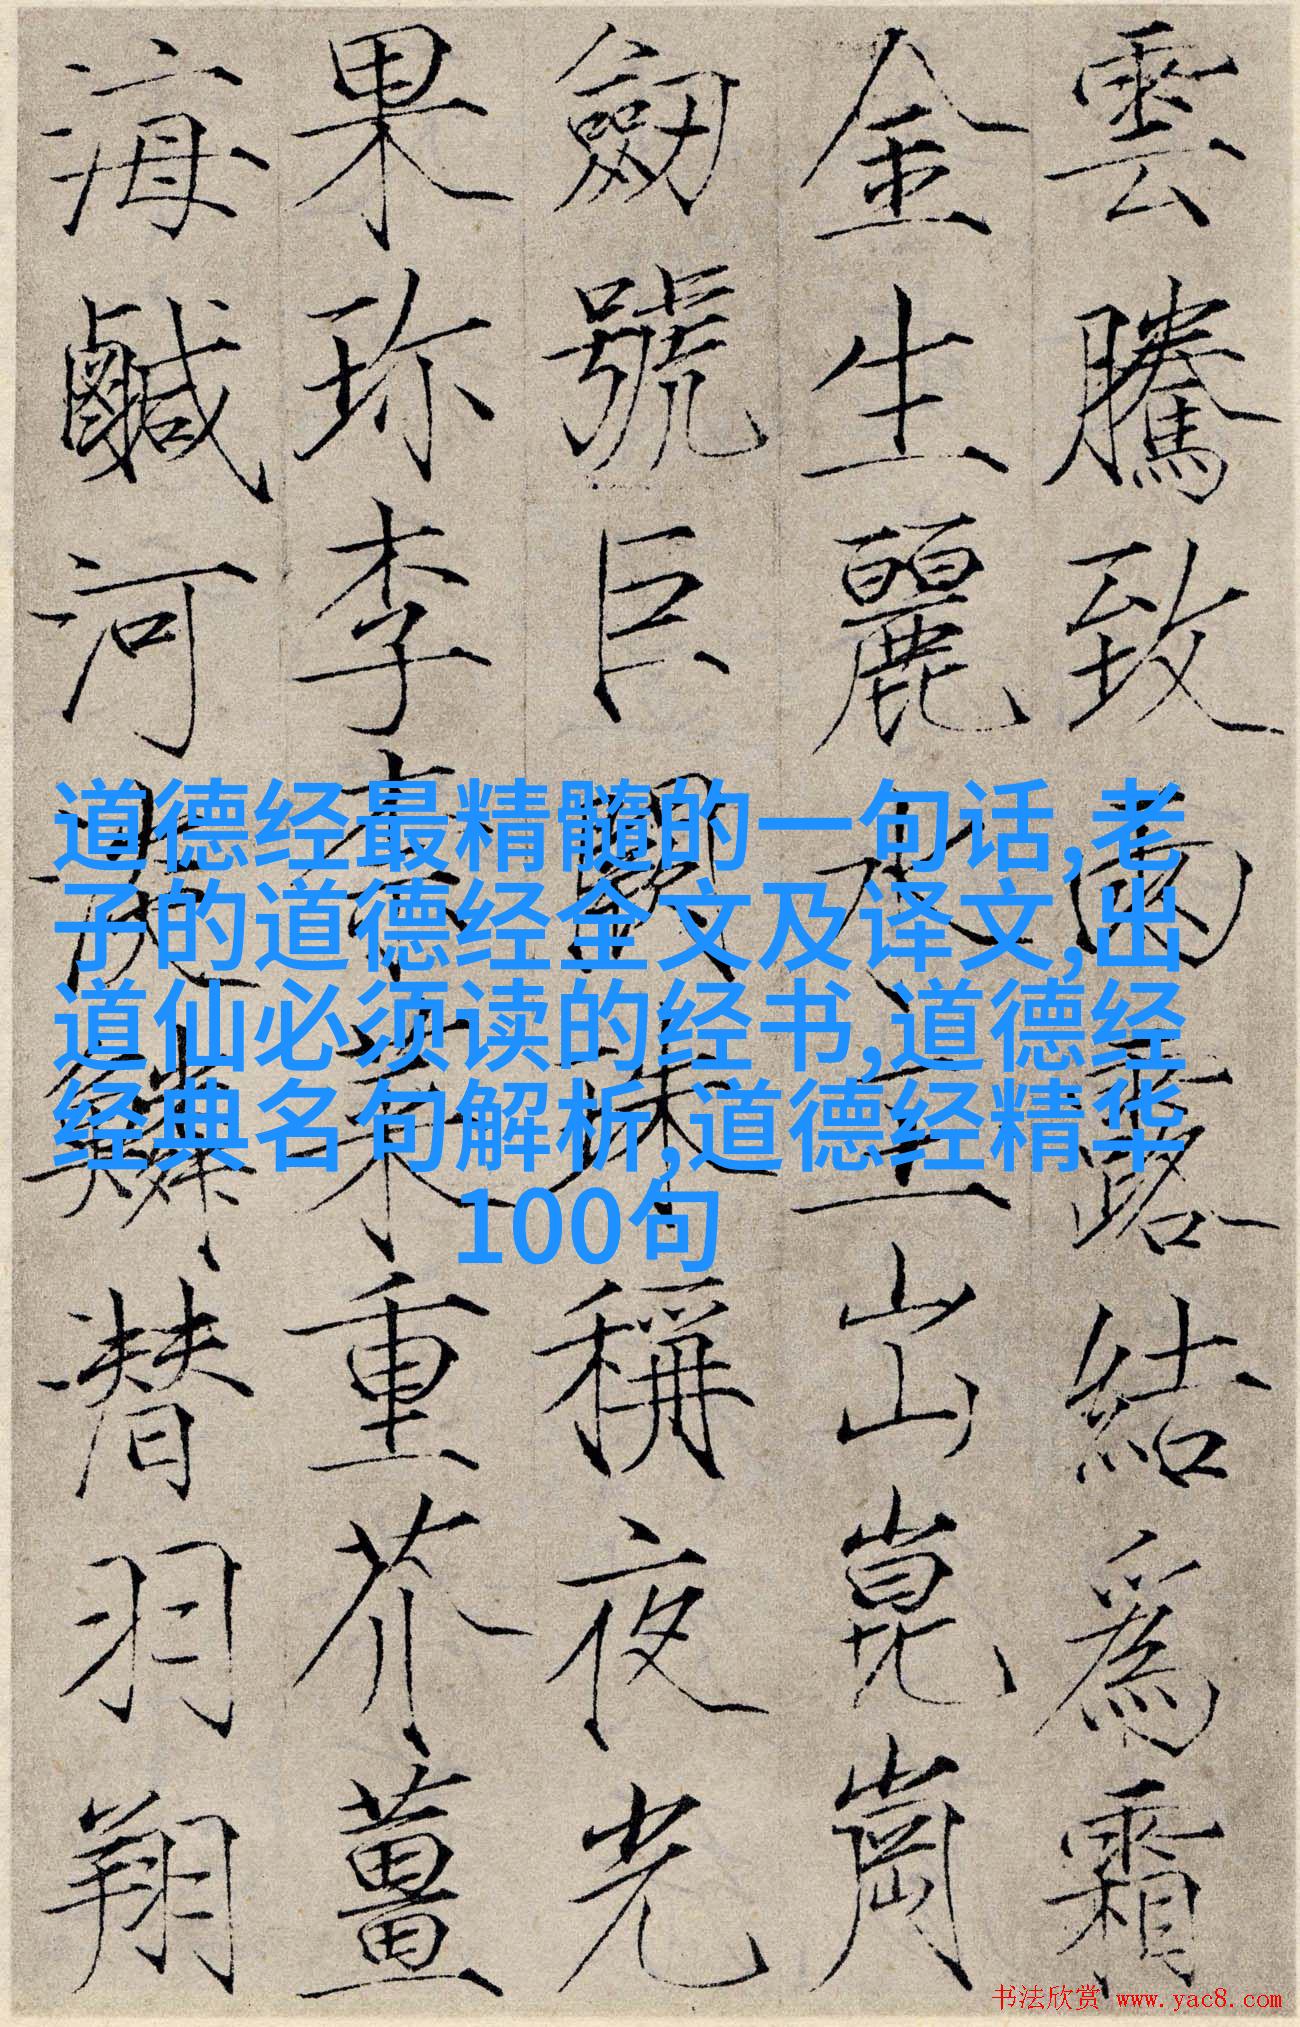 雲騰致雨露結爲霜
金生麗水玉出崑崗
劒號巨闕珠稱夜光
果珎李柰菜重芥薑
海鹹河淡鱗潛羽翔
道德经最精髓的一句话,老
子的道德经全文及译文,出
道仙必须读的经书,道德经
经典名句解析,道德经精华
100句
书法欣赏 www.yac8.com